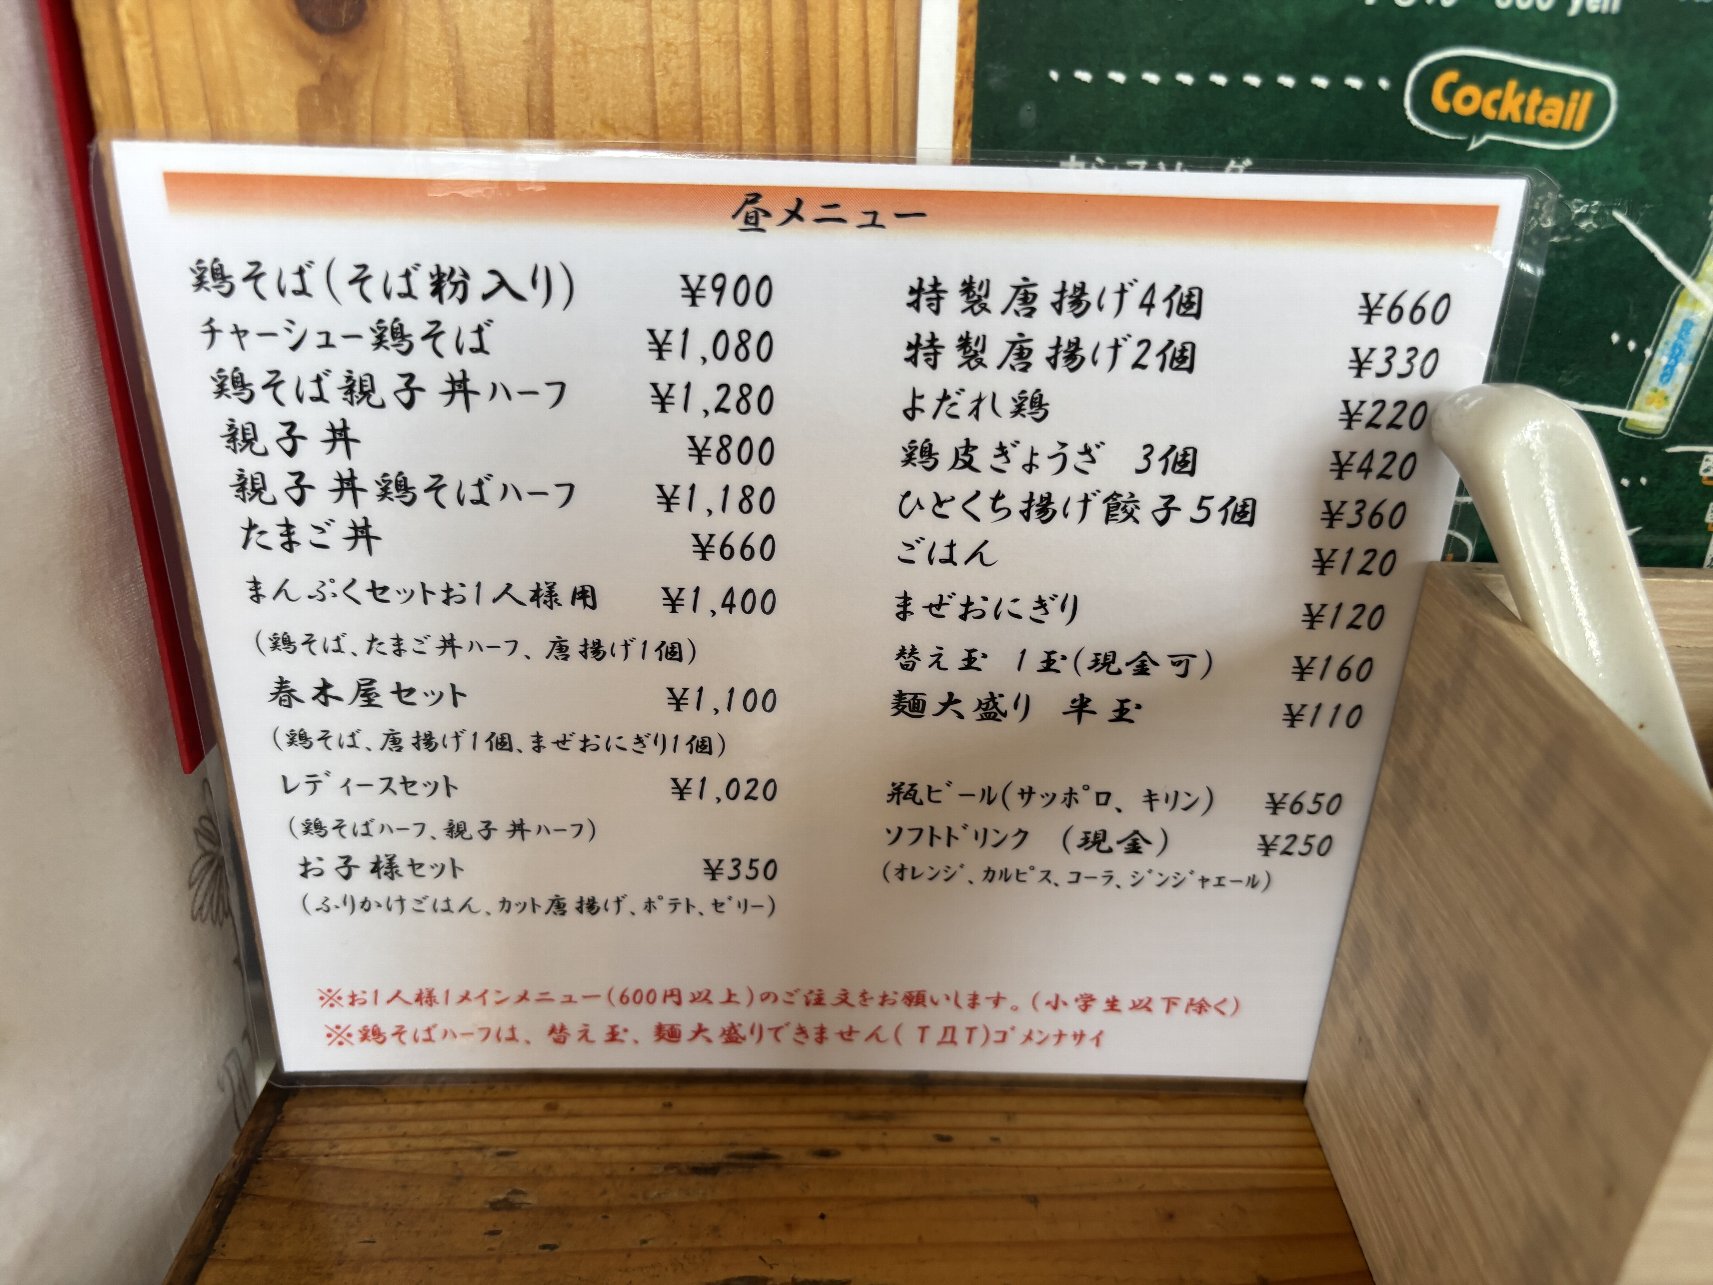 昼メニュー
鶏そば(そば粉入り) ¥900
チャーシュー鶏そば ¥1,080
鶏そば親子丼ハーフ ¥1,280
親子丼 ¥800
親子丼鶏そばハーフ ¥1,180
たまご丼 ¥660
まんぷくセットお1人様用 ¥1,400
(鶏そば、たまご丼ハーフ、唐揚げ1個)
春木屋セット ¥1,100
(鶏そば、唐揚げ1個、まぜおにぎり1個)
レディースセット ¥1,020
(鶏そばハーフ、親子丼ハーフ)
お子様セット ¥350
(ふりかけごはん、カット唐揚げ、ポテト、ゼリー)
特製唐揚げ4個 ¥660
特製唐揚げ2個 ¥330
よだれ鶏 ¥220
鶏皮ぎょうざ 3個 ¥420
ひとくち揚げ餃子5個 ¥360
ごはん ¥120
まぜおにぎり ¥120
替え玉 1玉(現金可) ¥160
麺大盛り 半玉 ¥110
瓶ビール(サッポロ、キリン) ¥650
ソフトドリンク (現金) ¥250
(オレンジ、カルピス、コーラ、ジンジャエール)
※お1人様1メインメニュー(600円以上)のご注文をお願いします。(小学生以下除く)
※鶏そばハーフは、替え玉、麺大盛りできません(TДT)ゴメンナサイ
Cocktail